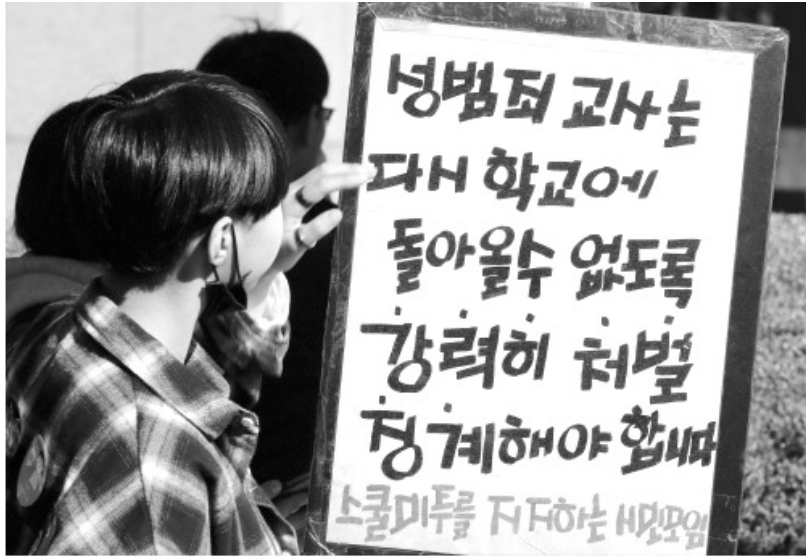 성범죄 교사는
다시 학교에
돌아올수 없도록
강력히 처벌
징계해야 합니다
스쿨미투를 지지하는 시민모임